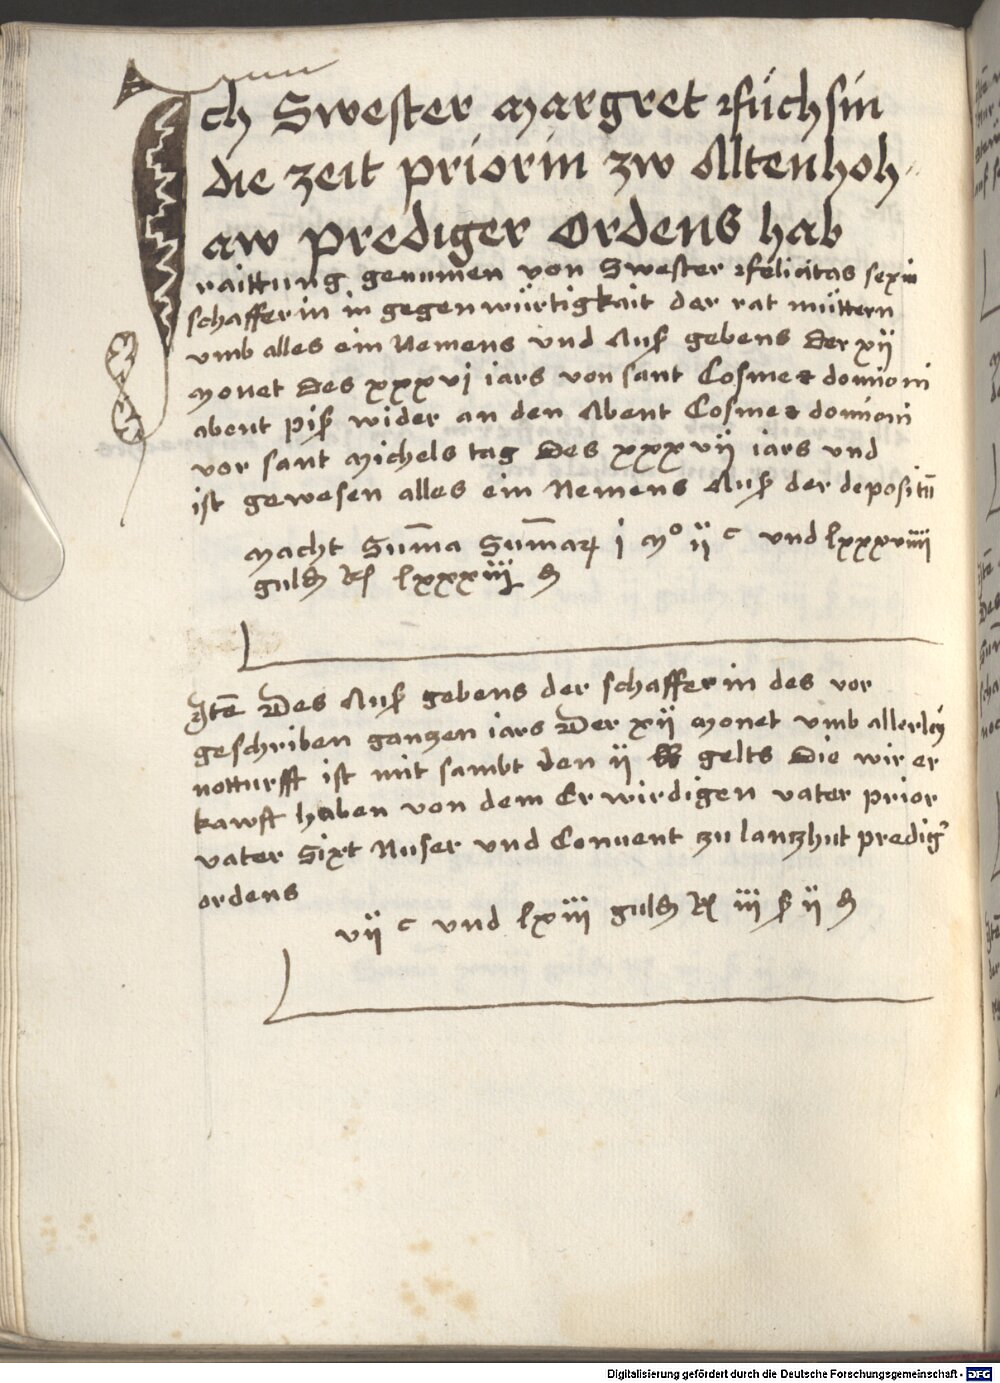 Ich Swester Margret Füchsin
die zeit priorin zw Altenhoh
aw prediger Ordens hab
raittung genumen von Swester Felicitas sexin
schafferin in gegenwürtigkait der rat müttern
vmb alles ein Nemens vnd Auß gebens Der xij
Monet Des xxxvj iars von sant Cosme et domioni
abent piß wider an den Abent Cosme et domioni
vor sant Michels tag Des xxxvij iars vnd
ist gewesen alles ein Nemens Auß der depositū
Macht Sum̄a Sum̄aꝝ j Mᵒ ij ᶜ vnd lxxxviiii
guld
Itē Des Auß gebens der schafferin des vor
geschriben gantzen iars Der xij Monet vmb allerley
notturfft ist mit sambt den ij gelts Die wir er
kawft haben von dem Er wirdigen vater prior
vater Sixt Nuser vnd Conuent zu lantzhut predig
ordens
vij ᶜ vnd lxiij iij ß ij
Digitalisierung gefördert durch die Deutsche Forschungsgemeinschaft - DFG